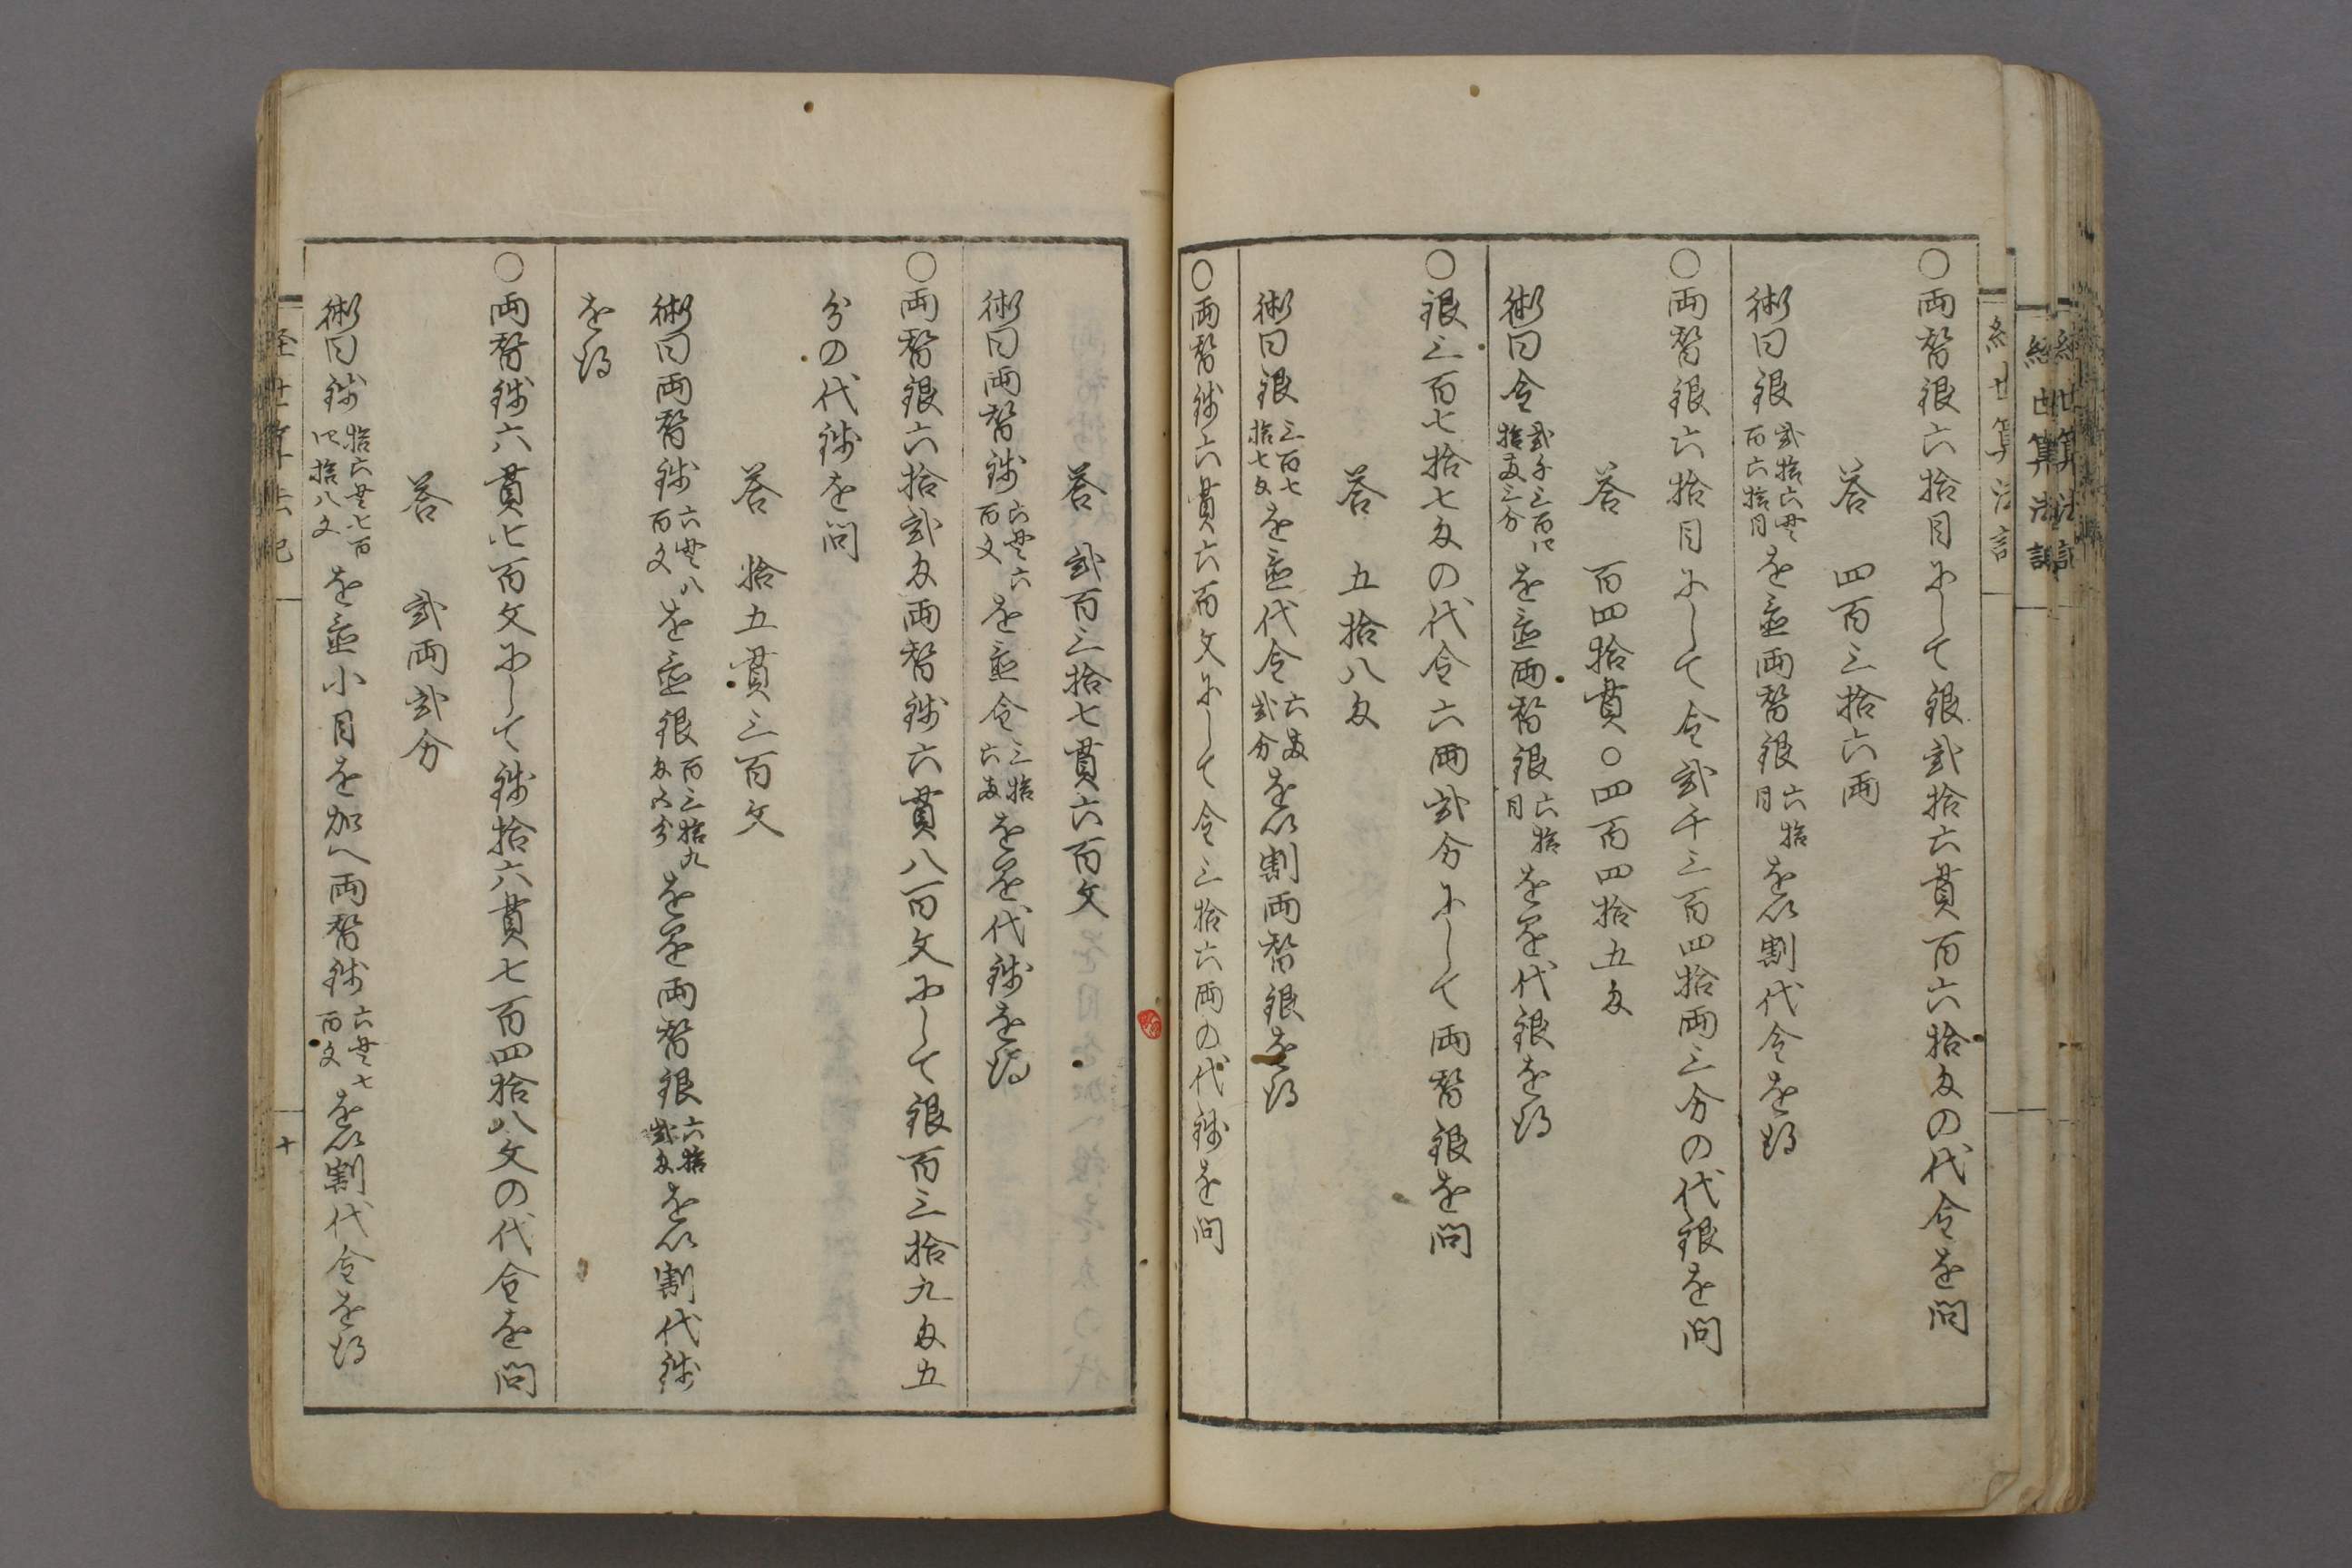 ○両替銀六拾目にして銀弐拾六貫百六拾匁の代金を問
答 四百三拾六両
術曰銀弐拾六貫百六拾目を置両替銀六拾目を以割代金を得
○両替銀六拾目にして金弐千三百四拾両三分の代銀を問
答 百四拾貫〇四百四拾五匁
術曰金弐千三百四拾両三分を置両替銀六拾目を乗代銀を得
○銀三百七拾七匁の代金六両弐分にして両替銀を問
答 五拾八匁
術曰銀三百七拾七匁を置代金六両弐分を以割両替銀を得
○両替銭六貫六百文にして金三拾六両の代銭を問
答 弐百三拾七貫六百文
術曰両替銭六貫六百文を置金三拾六両を乗代銭を得
○両替銀六拾弐匁両替銭六貫八百文にして銀百三拾九匁五
分の代銭を問
答 拾五貫三百文
術曰両替銭六貫八百文を置銀百三拾九匁五分を乗両替銀六拾弐匁を以割代銭
を得
○両替銭六貫七百文にして銭拾六貫七百四拾八文の代金を問
答 弐両弐分
術曰銭拾六貫七百四拾八文を置小目を加へ両替銭六貫七百文を以割代金を得
経世算法
十